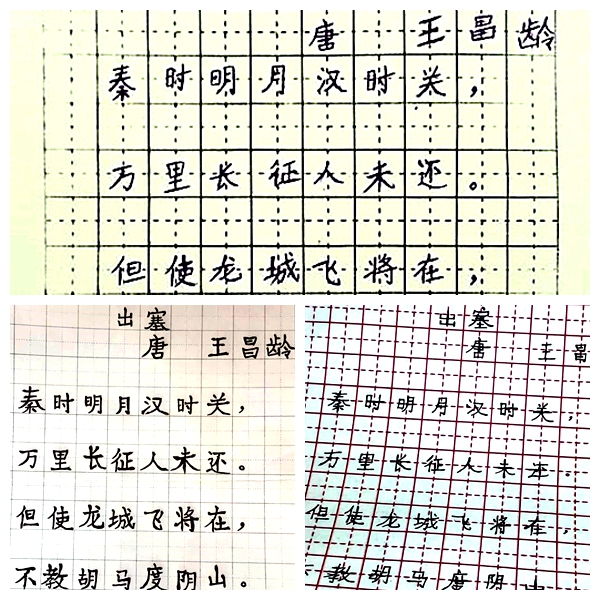 唐 王昌龄
秦时明月汉时关，
万里长征人未还。
但使龙城飞将在，
出塞
唐 王昌龄
秦时明月汉时关，
万里长征人未还。
但使龙城飞将在，
不教胡马度阴山。
出塞
唐 王昌
秦时明月汉时关，
万里长征人未还.
但使龙城飞将在，
不教胡马度阴山